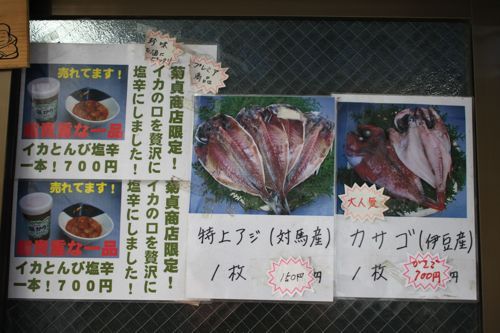 珍味
お酒にピッタリ
プレミア商品
売れてます！
超貴重な一品
イカとんび塩辛
一本！700円
菊貞商店限定！
イカの口を贅沢に
塩辛にしました！
売れてます！
超貴重な一品
イカとんび塩辛
一本！700円
菊貞商店限定！
イカの口を贅沢に
塩辛にしました！
特上アジ(対馬産)
1枚 150円
大人気
カサゴ(伊豆産)
1枚
700円